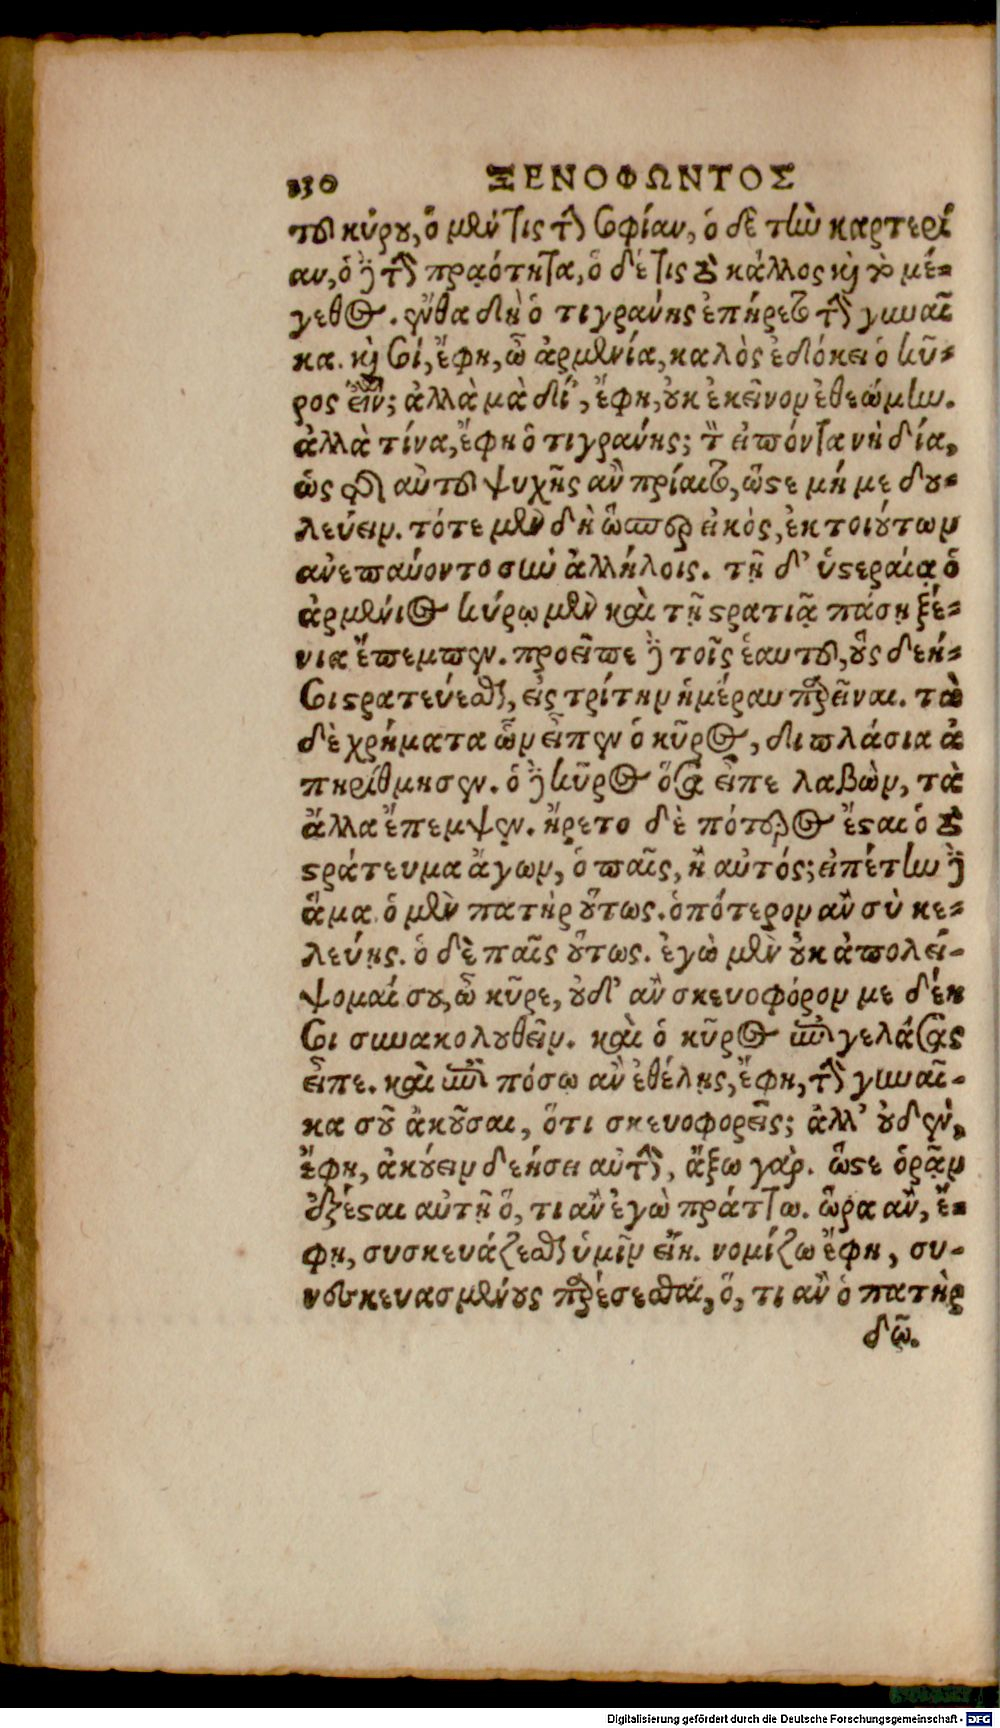 230 ΞΕΝΟΦΩΝΤΟΣ
τοῦ κύρου, ὁ μέν τις τὴν σοφίαν, ὁ δὲ τὴν καρτερί
αν, ὁ δὲ τὴν πραότητα, ὁ δέ τις τὸ κάλλος καὶ τὸ μέ-
γεθος. ἔνθα δὴ ὁ τιγράνης ἐπήρετο τὴν γυναῖ
κα. καὶ σοί, ἔφη, ὦ ἀρμενία, καλὸς ἐδόκει ὁ κῦ-
ρος εἶναι; ἀλλὰ μὰ δί', ἔφη, οὐκ ἐκεῖνον ἐθεώμην.
ἀλλὰ τίνα, ἔφη ὁ τιγράνης; τὸν εἰπόντα νὴ δία,
ὡς τῆς αὐτοῦ ψυχῆς ἂν πρίαιτο, ὥστε μή με δου-
λεύειν. τότε μὲν δὴ ὥσπερ εἰκὸς, ἐκ τοιούτων
ἀνεπαύοντο σὺν ἀλλήλοις. τῇ δ' ὑστεραίᾳ ὁ
ἀρμένιος κύρῳ μὲν καὶ τῇ στρατιᾷ πάσῃ ξέ-
νια ἔπεμπεν. προεῖπε δὲ τοῖς ἑαυτοῦ, οὓς δεή-
σοι στρατεύεσθαι, εἰς τρίτην ἡμέραν παρεῖναι. τὰ
δὲ χρήματα ὧν εἶπεν ὁ κῦρος, διπλάσια ἀ
πηρίθμησεν. ὁ δὲ κῦρος ὅσα εἶπε λαβὼν, τὰ
ἄλλα ἔπεμψεν. ἤρετο δὲ πότερος ἔσται ὁ τὸ
στράτευμα ἄγων, ὁ παῖς, ἢ αὐτός; εἰπέτην δὲ
ἅμα. ὁ μὲν πατὴρ οὕτως. ὁπότερον ἂν σὺ κε-
λεύῃς. ὁ δὲ παῖς οὕτως. ἐγὼ μὲν οὐκ ἀπολεί-
ψομαί σου, ὦ κῦρε, οὐδ' ἂν σκευοφόρον με δέη
σοι συνακολουθεῖν. καὶ ὁ κῦρος ἐπιγελάσας
εἶπε. καὶ ἐπὶ πόσῳ ἂν ἐθέλῃς, ἔφη, τὴν γυναῖ-
κα σοῦ ἀκοῦσαι, ὅτι σκευοφορεῖς; ἀλλ' οὐδὲν,
ἔφη, ἀκούειν δεήσει αὐτὴν, ἄξω γὰρ. ὥστε ὁρᾷν
ἐξέσται αὐτῇ ὅ, τι ἂν ἐγὼ πράττω. ὥρα ἂν, ἔ-
φη, συσκευάζεσθαι ὑμῖν εἴη. νομίζω ἔφη, συ-
νεσκευασμένους παρέσεσθαι, ὅ, τι ἂν ὁ πατὴρ
δῷ.
Digitalisierung gefördert durch die Deutsche Forschungsgemeinschaft - DFG